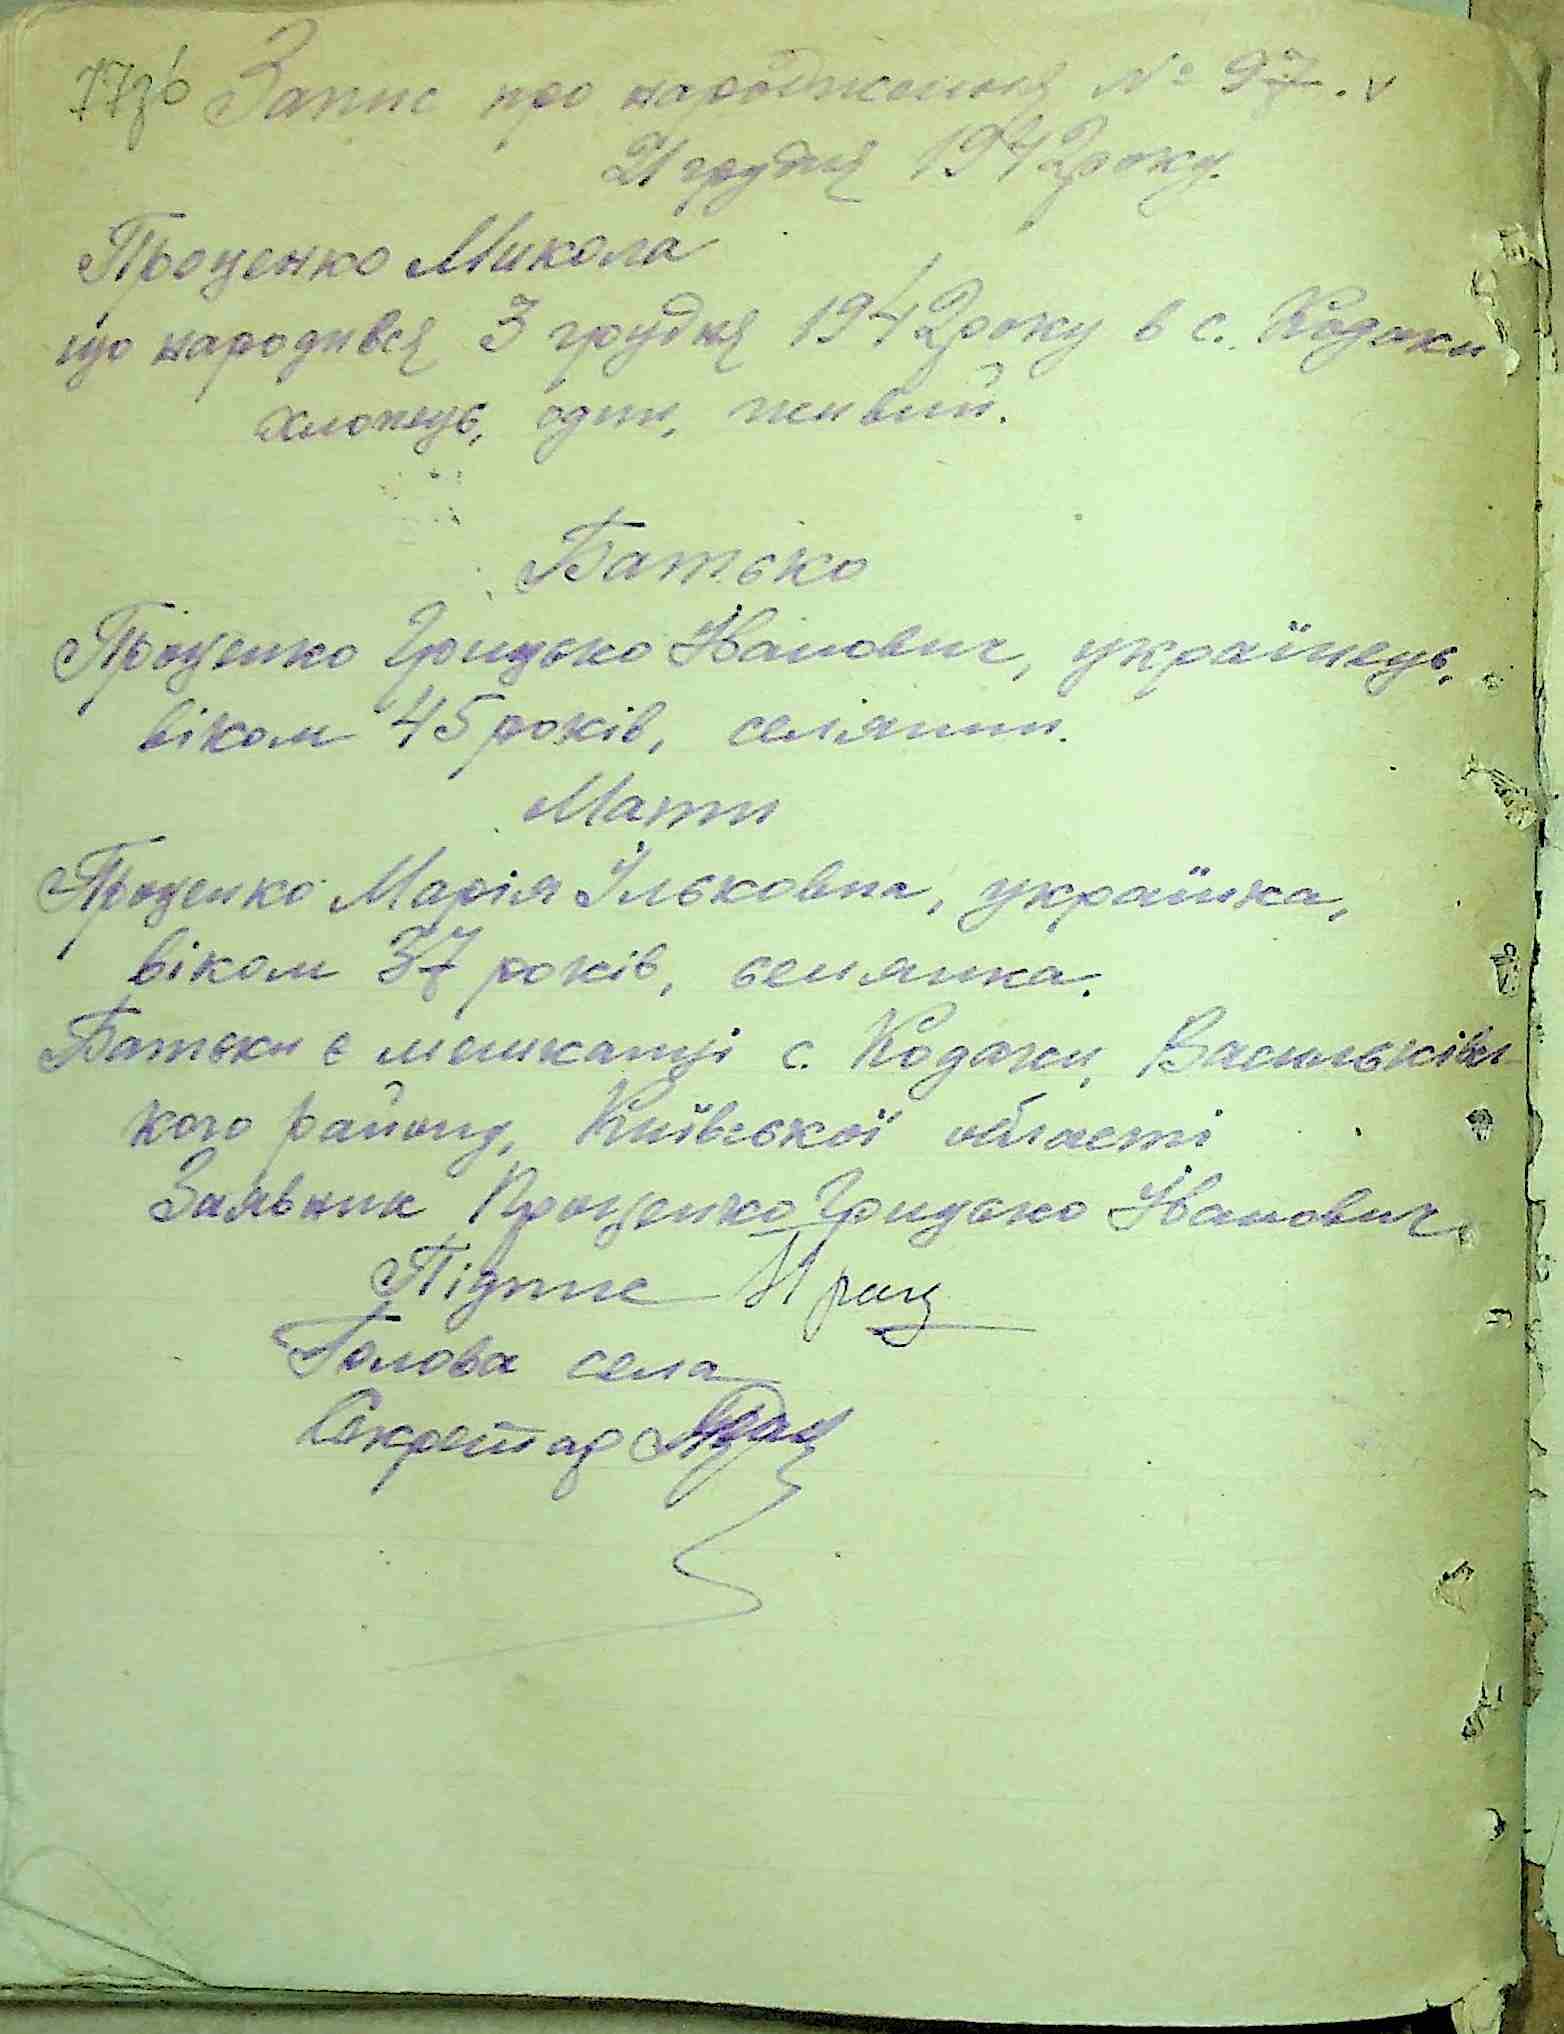 77зв Запис про народження № 97. v
21 грудня 1942 року.
Проценко Микола
що народився 3 грудня 1942 року в с. Кодаки
хлопець, один, живий.
Батько
Проценко Грицько Іванович, українець,
віком 45 років, селянин.
Мати
Проценко Марія Ільковна, українка,
віком 37 років, селянка.
Батьки є мешканці с. Кодаки, Васильківсь
кого району, Київської області
Заявник Проценко Грицько Іванович.
Підпис Проц
Голова села
Секретар